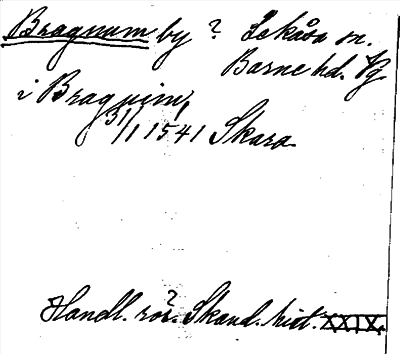 Bragnum by ? Lekåsa sn.
Barne hd. Vg
i Bragnim,
31/1 1541 Skara
Handl. rör. ? Skand. hist. XXIX,